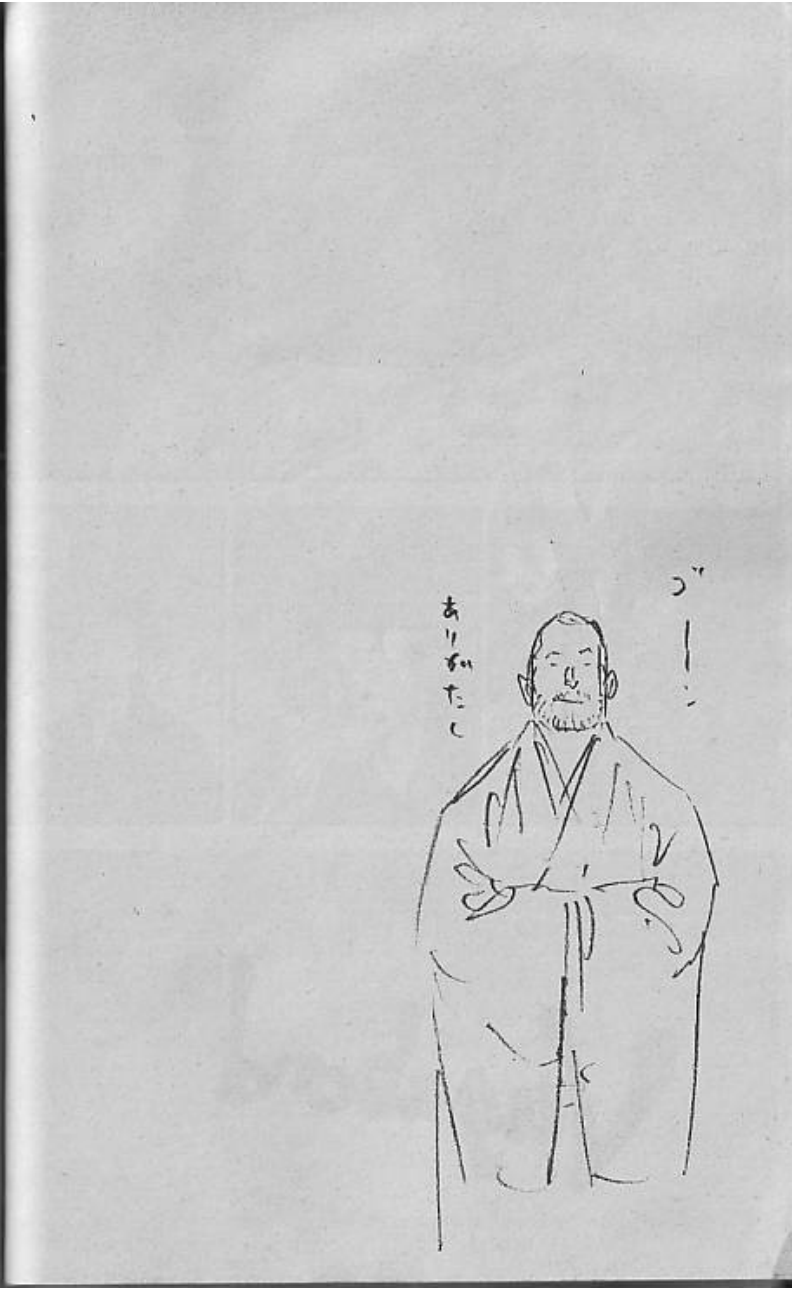 ゴーン
ありがたし